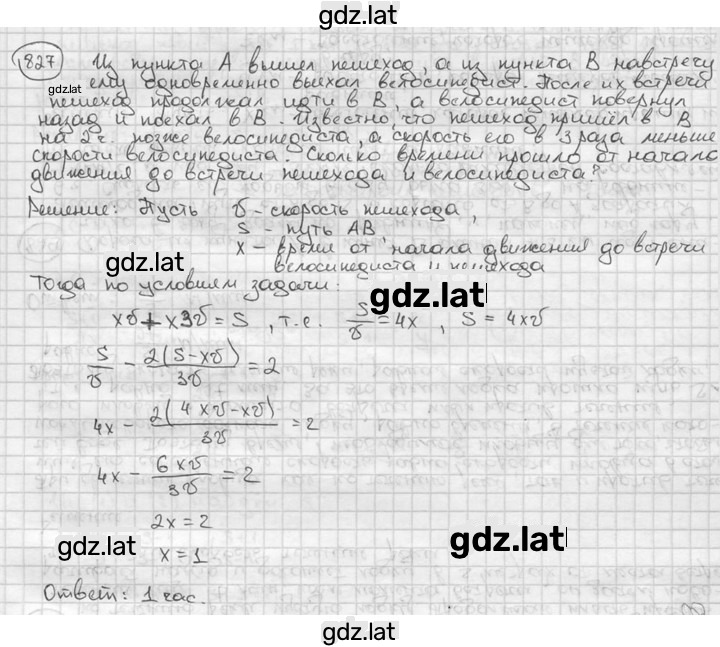 gdz.lat
827 Из пункта А вышел пешеход, а из пункта В навстречу
ему одновременно выехал велосипедист. После их встречи
gdz.lat
пешеход продолжал идти в В, а велосипедист повернул
назад и поехал в В. Известно, что пешеход пришёл в В
на 2 ч. позже велосипедиста, а скорость его в 3 раза меньше
скорости велосипедиста. Сколько времени прошло от начала
движения до встречи пешехода и велосипедиста?
Решение: Пусть v - скорость пешехода,
S - путь АВ
x - время от начала движения до встречи
велосипедиста и пешехода
gdz.lat
Тогда по условиям задачи:
gdz.lat
xv + x3v = S, т.е. S/v = 4x, S = 4xv
S/v - 2(S-xv)/3v = 2
4x - 2(4xv-xv)/3v = 2
4x - 6xv/3v = 2
2x = 2
gdz.lat
x = 1
gdz.lat
Ответ: 1 час.
gdz.lat